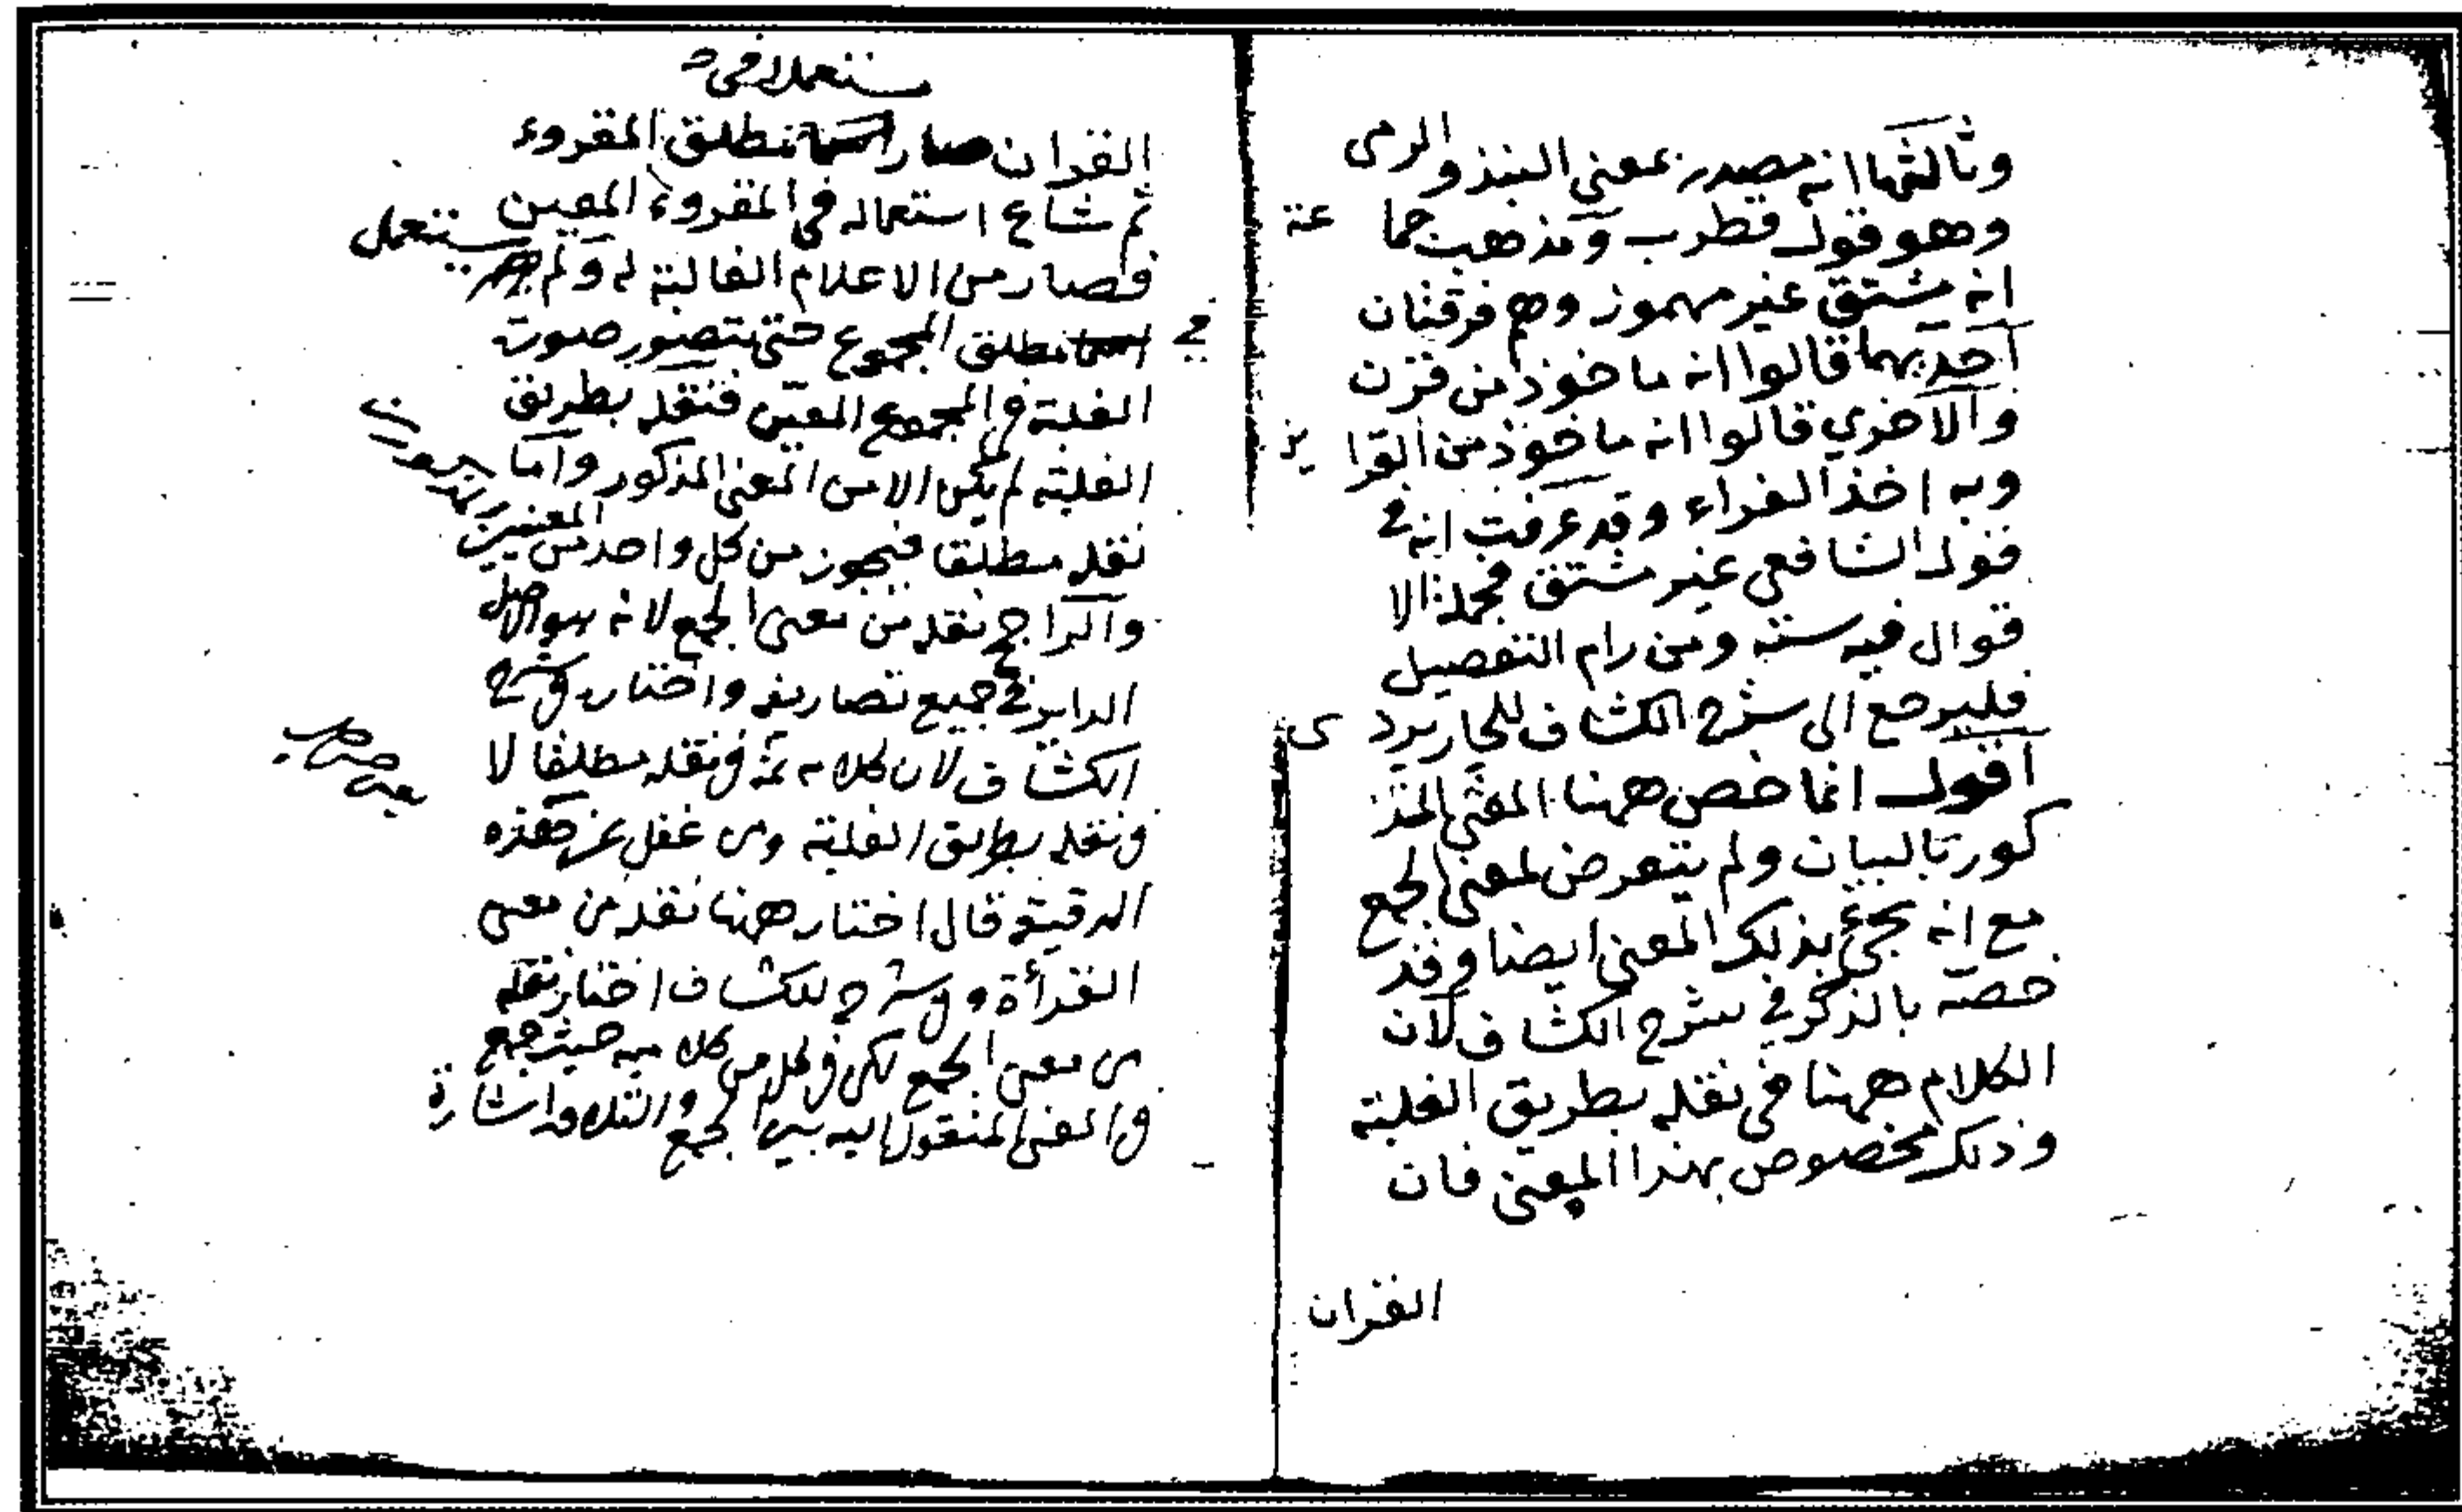 وثالثها انه مصدر بمعنى النبذ والرمى
وهو قول قطرب ومذهب جما عة
انه مشتق غير مهموز وهم فرقتان
احديهما قالوا انه ماخوذ من قرن
والاخرى قالوا انه ماخوذ من القرا ين
وبه اخذ الفراء وقد عرفت انه فى
قول الشافعى غير مشتق فجملة الا
قوال فيه ستة ومن رام التفصيل
فليرجع الى شرح الكشاف للجاربرد ى
اقول انما خص ههنا المعنى المذ
كور بالبيان ولم يتعرض لمعنى الجمع
مع انه يجئ بذلك المعنى ايضا وقد
خصه بالذكر فى شرح الكشاف لان
الكلام ههنا فى نقله بطريق الغلبة
وذلك مخصوص بهذا المعنى فان
القران
مستعملا فى
القران صار لمطلق المقروء
ثم شاع استعماله فى المقروء المعين
فصار من الاعلام الغالبة له ولم يستعمل
فى مطلق المجموع حتى يتصور صورة
الغلبة فى المجموع المعين فنقله بطريق
الغلبة لم يكن الا من المعنى المذكور واما
نقله مطلقا فيجوز من كل واحد من المعنيين المذكورين
والراجح نقله من معنى الجمع لانه هو الاصل
الداير فى جميع تصاريفه واختاره فى شرح
الكشاف لان كلامه ثمة فى نقله مطلقا لا
فى نقله بطريق الغلبة ومن غفل عن هذه
الدقيقة قال اختار ههنا نقله من معنى
القرأة وفى شرح للكشاف اختار نقله
من معنى الجمع لكن فى كل من كلاميه حيث جمع
فى المعنى المنقول اليه بين الجمع والتلاوة اشارة